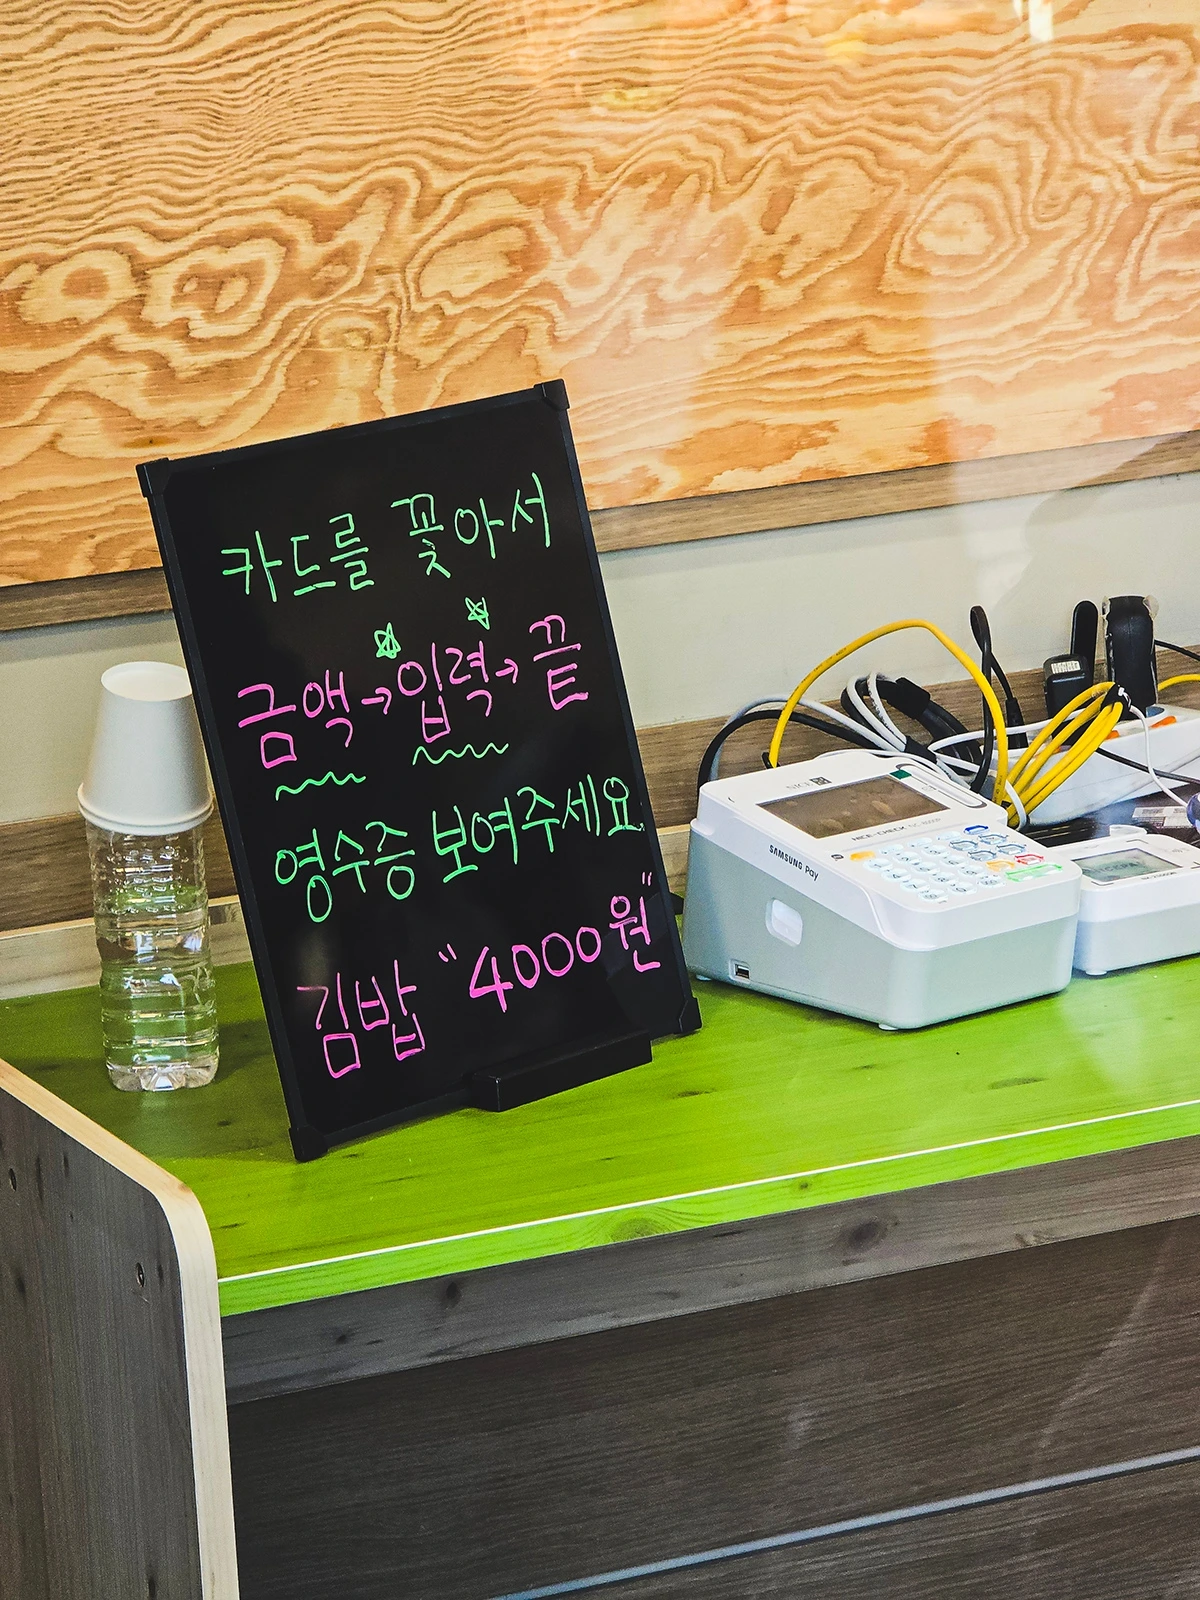 카드를 꽂아서
금액→입력→끝
영수증 보여주세요
김밥 "4000원"
SAMSUNG Pay